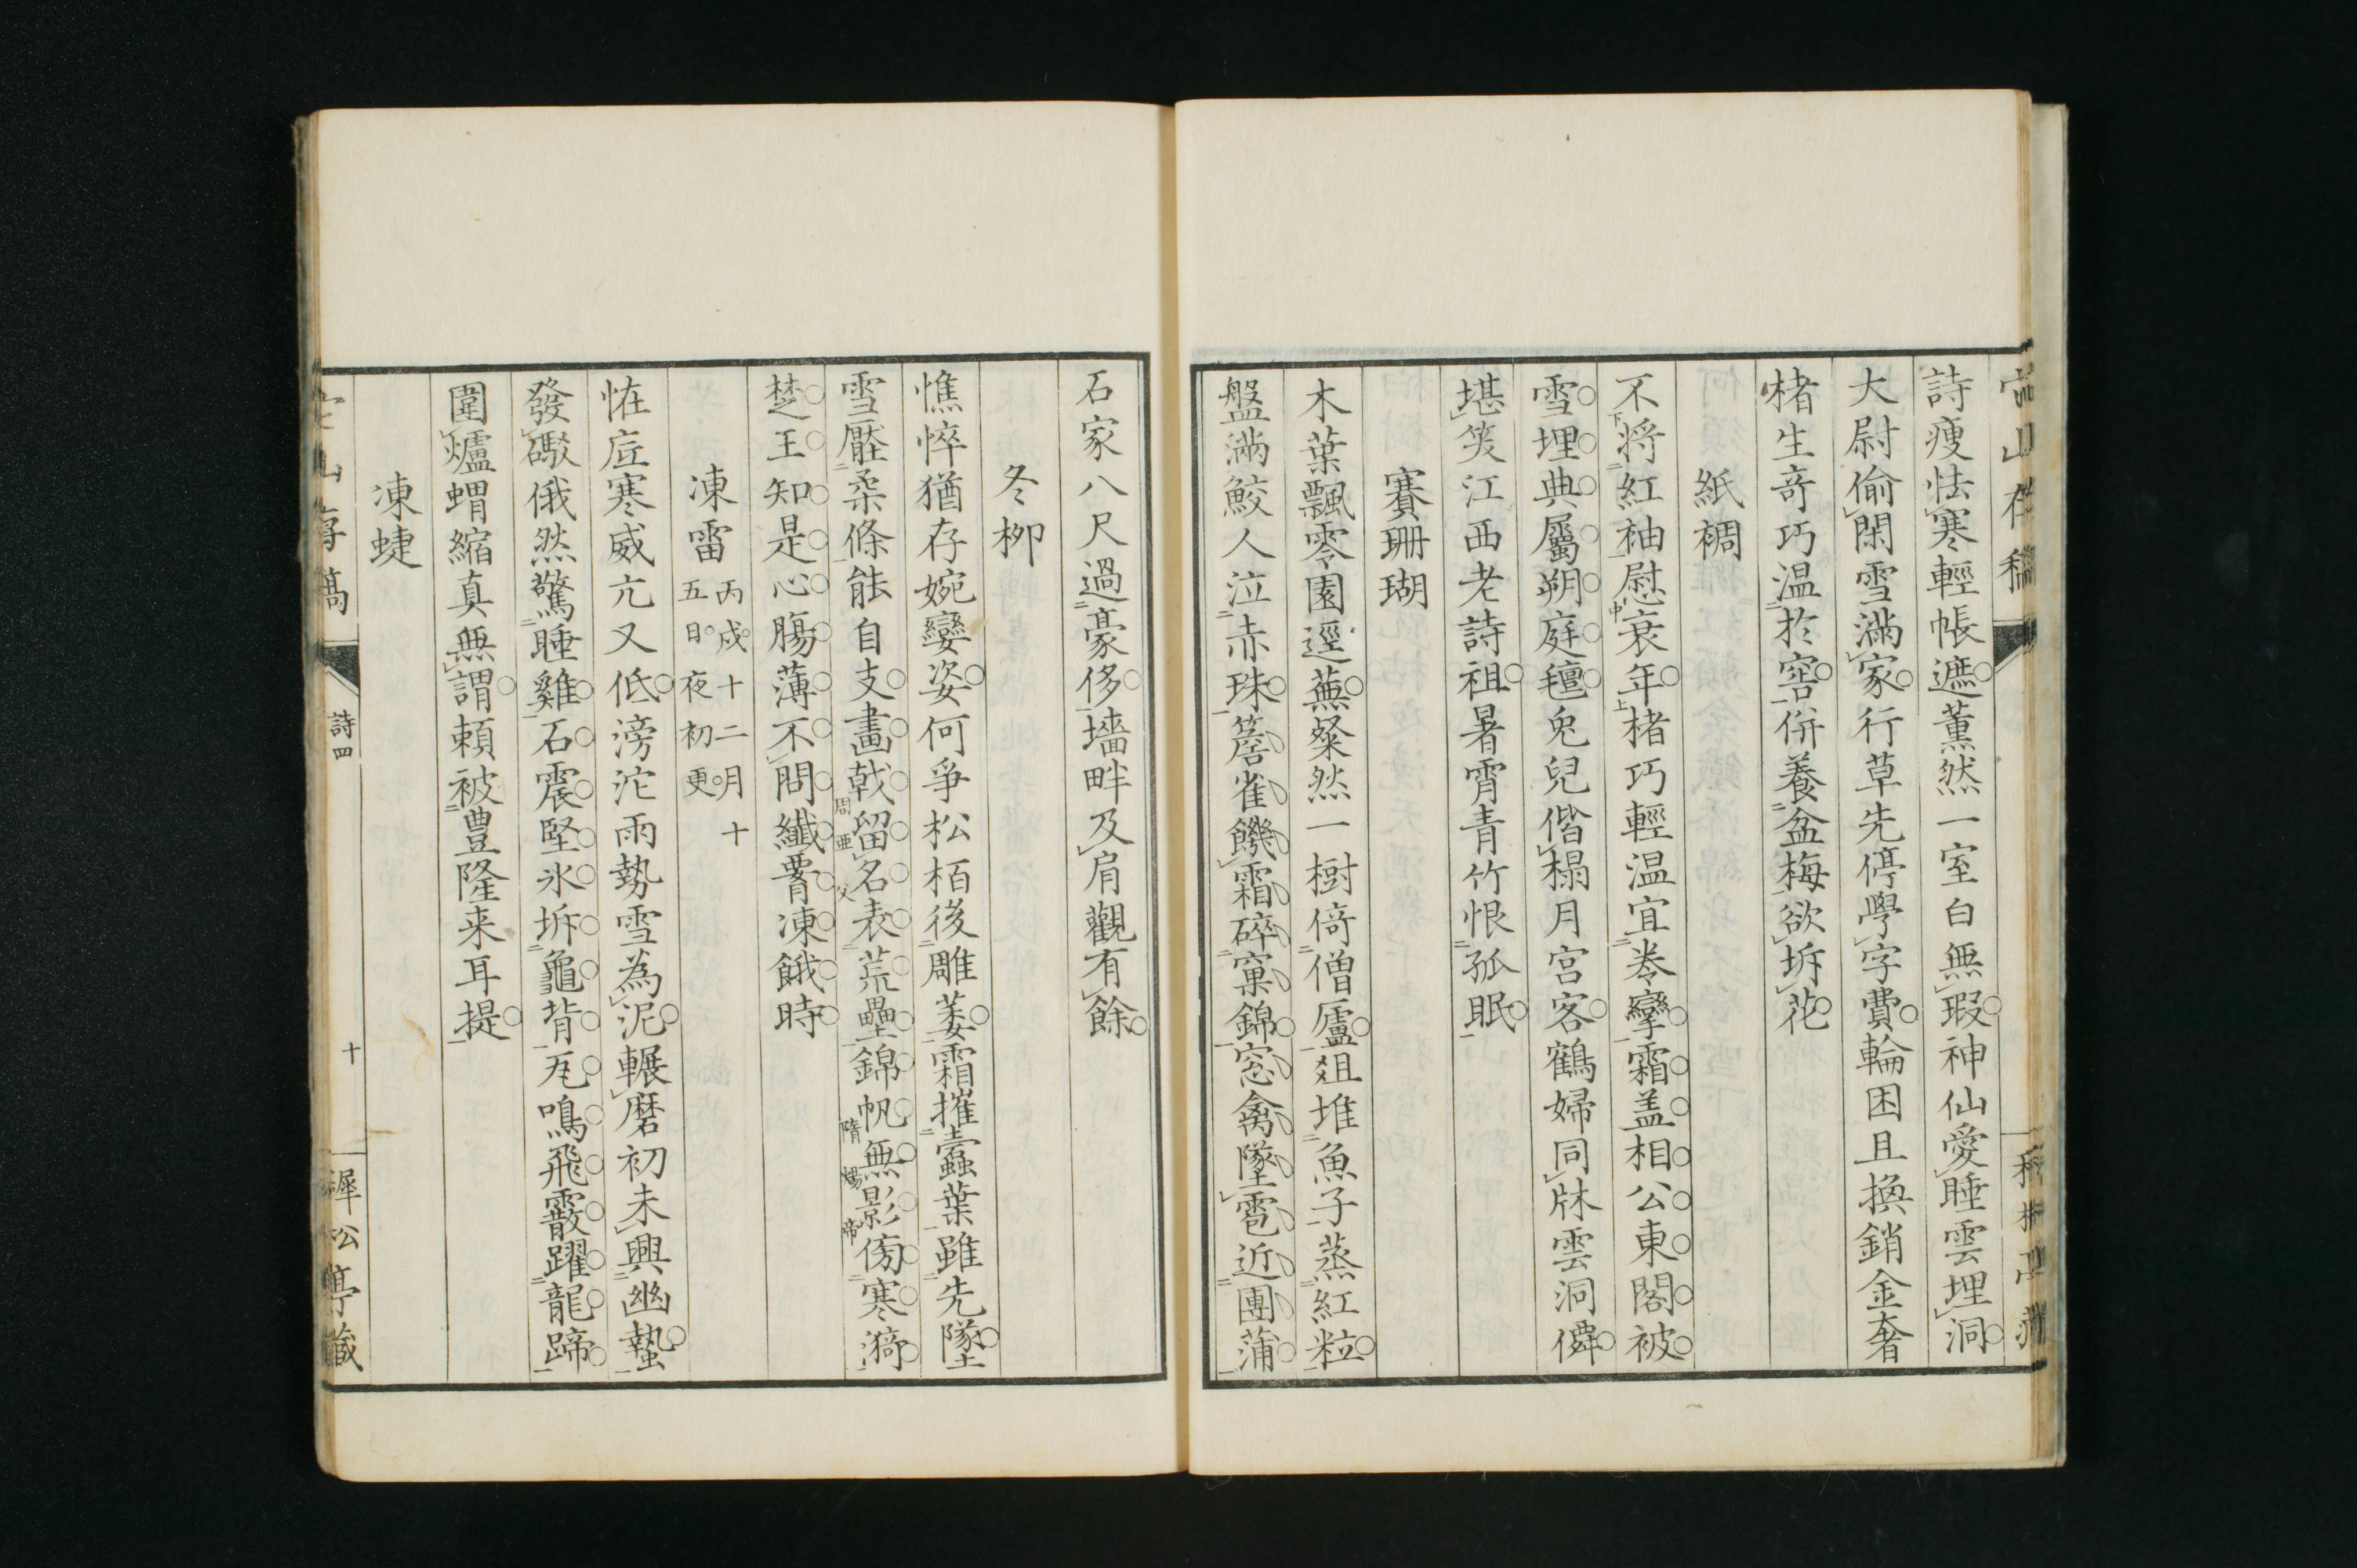 詩瘦怯寒輕帳遮薰然一室白無瑕神仙愛睡雲埋洞
大尉偷閑雪滿家行草先停學字費輪囷且換銷金奢
楮生奇巧温於窖併養盆梅欲坼花
紙裯
不將紅袖慰衰年楮巧輕温宜拳攣霜盖相公東閤被
下中上
雪埋典屬朔庭氊兎兒偕榻月宮客鶴婦同牀雲洞僊
堪笑江西老詩祖暑宵青竹恨孤眠
賽珊瑚
木葉飄零園逕蕪粲然一樹倚僧廬爼堆魚子蒸紅粒
盤滿鮫人泣赤珠簷雀饑霜碎窠錦窓禽墜雹近團蒲
石家八尺過豪侈墻畔及肩觀有餘
冬栁
憔悴猶存婉孌姿何爭松栢後雕萎霜摧蠹葉雖先墜
雪壓柔條能自支畫戟留名表荒壘錦帆無影傍寒漪
周亜父
隋煬帝
楚王知是心膓薄不問纖腰凍餓時
凍雷
丙戍十二月十
五日夜初更
恠底寒威亢又低滂沱雨勢雪為泥輾磨初未興幽蟄
發礟俄然驚睡雞石震堅氷坼龜背瓦鳴飛霰躍龍蹄
圍爐蝟縮真無謂頼被豊隆来耳提
凍蜨
詩四
十